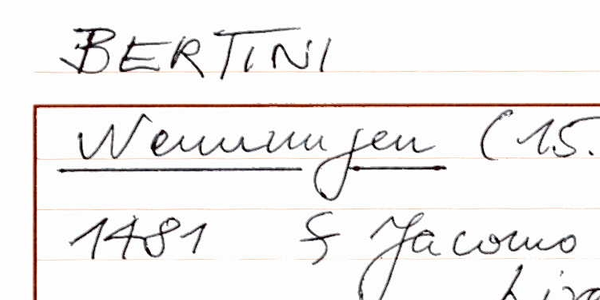 BERTINI
Nennungen (15.
1481 § Jacomo